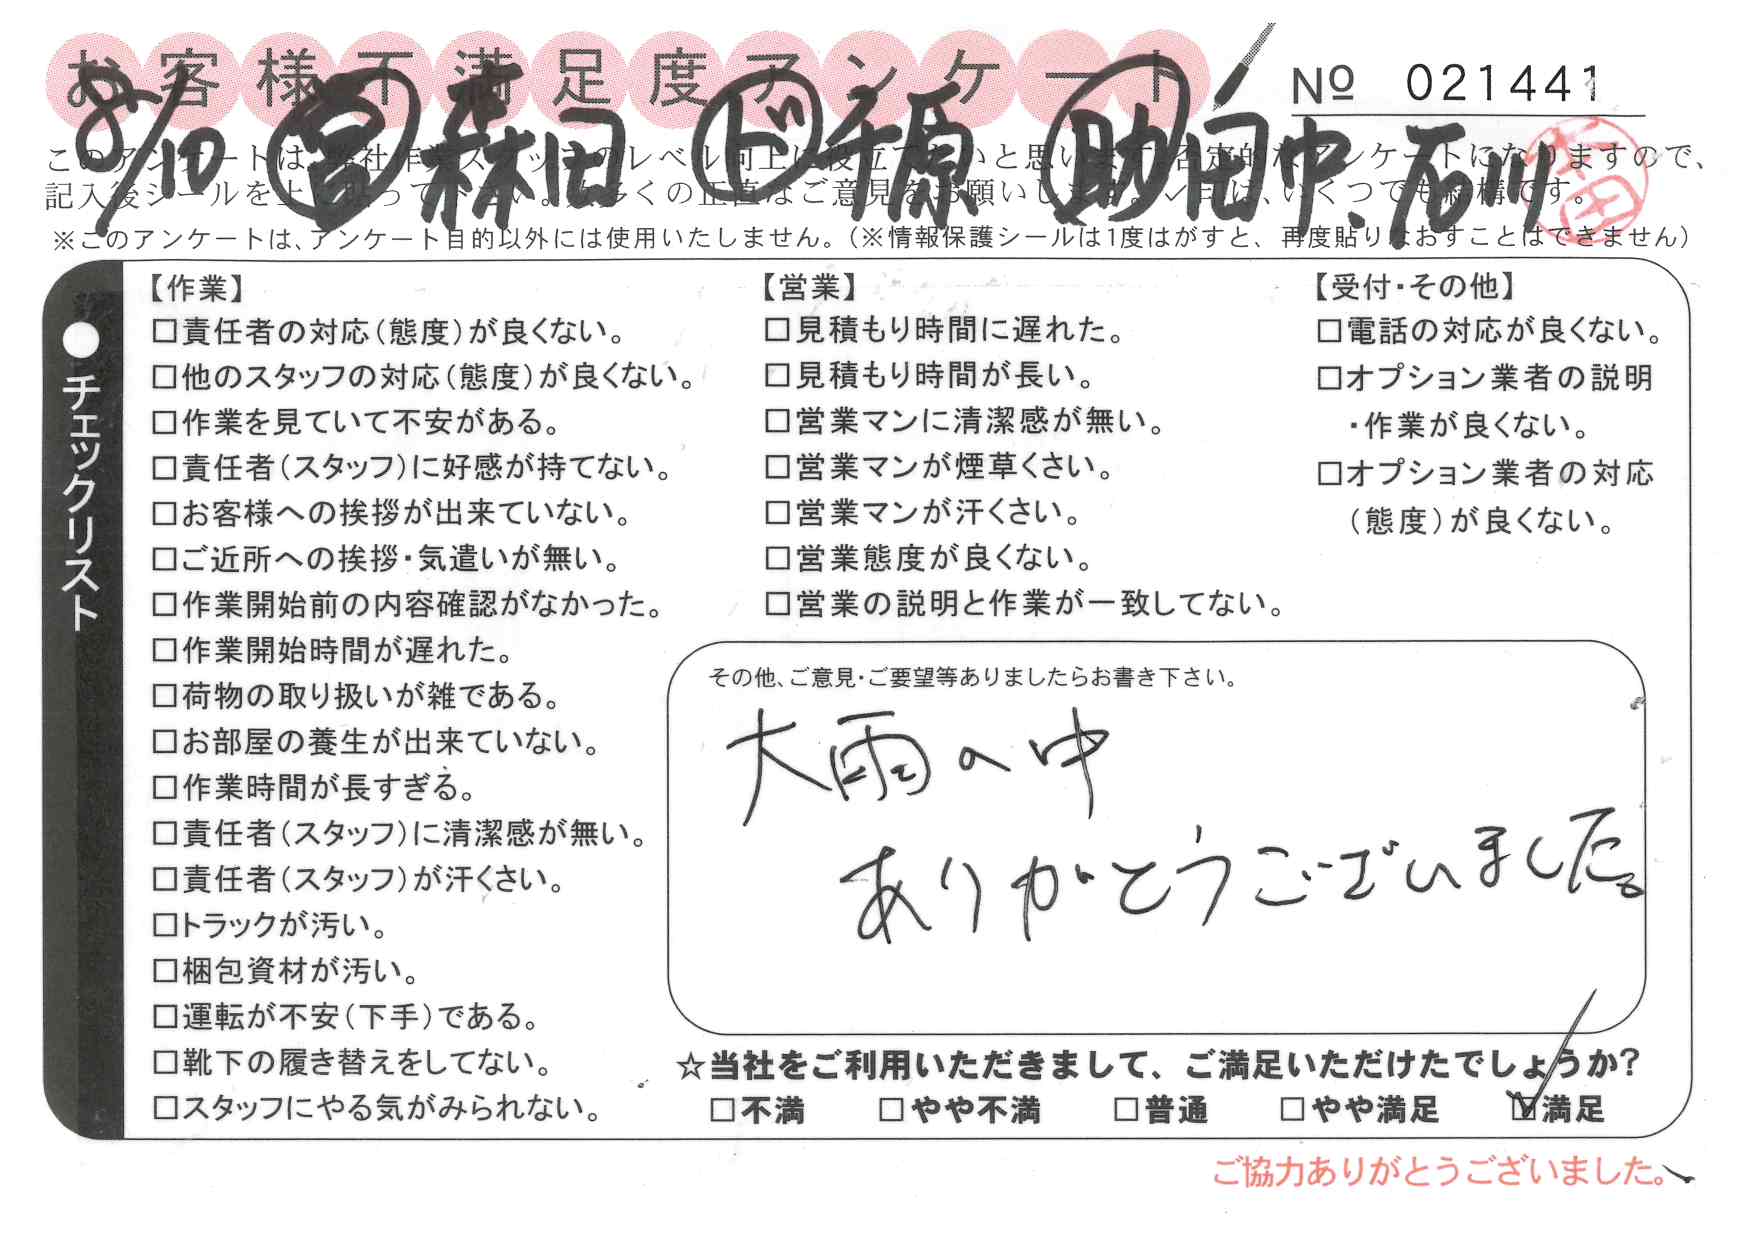 お客様不満足度アンケート
No 021441
8/10 営 森田 ド 千原 助 田中、石川
このアンケートは、弊社作業スタッフのレベル向上に役立てたいと思います。否定的なアンケートになりますので、
記入後シールを上に貼って下さい。数多くの正直なご意見をお願いします。✓印は、いくつでも結構です。
※このアンケートは、アンケート目的以外には使用いたしません。(※情報保護シールは1度はがすと、再度貼りなおすことはできません)
●チェックリスト
【作業】
□責任者の対応(態度)が良くない。
□他のスタッフの対応(態度)が良くない。
□作業を見ていて不安がある。
□責任者(スタッフ)に好感が持てない。
□お客様への挨拶が出来ていない。
□ご近所への挨拶・気遣いが無い。
□作業開始前の内容確認がなかった。
□作業開始時間が遅れた。
□荷物の取り扱いが雑である。
□お部屋の養生が出来ていない。
□作業時間が長すぎる。
□責任者(スタッフ)に清潔感が無い。
□責任者(スタッフ)が汗くさい。
□トラックが汚い。
□梱包資材が汚い。
□運転が不安(下手)である。
□靴下の履き替えをしてない。
□スタッフにやる気がみられない。
【営業】
□見積もり時間に遅れた。
□見積もり時間が長い。
□営業マンに清潔感が無い。
□営業マンが煙草くさい。
□営業マンが汗くさい。
□営業態度が良くない。
□営業の説明と作業が一致してない。
【受付・その他】
□電話の対応が良くない。
□オプション業者の説明
・作業が良くない。
□オプション業者の対応
(態度)が良くない。
その他、ご意見・ご要望等ありましたらお書き下さい。
大雨の中
ありがとうございました。
☆当社をご利用いただきまして、ご満足いただけたでしょうか?
□不満 □やや不満 □普通 □やや満足 ☑満足
ご協力ありがとうございました。